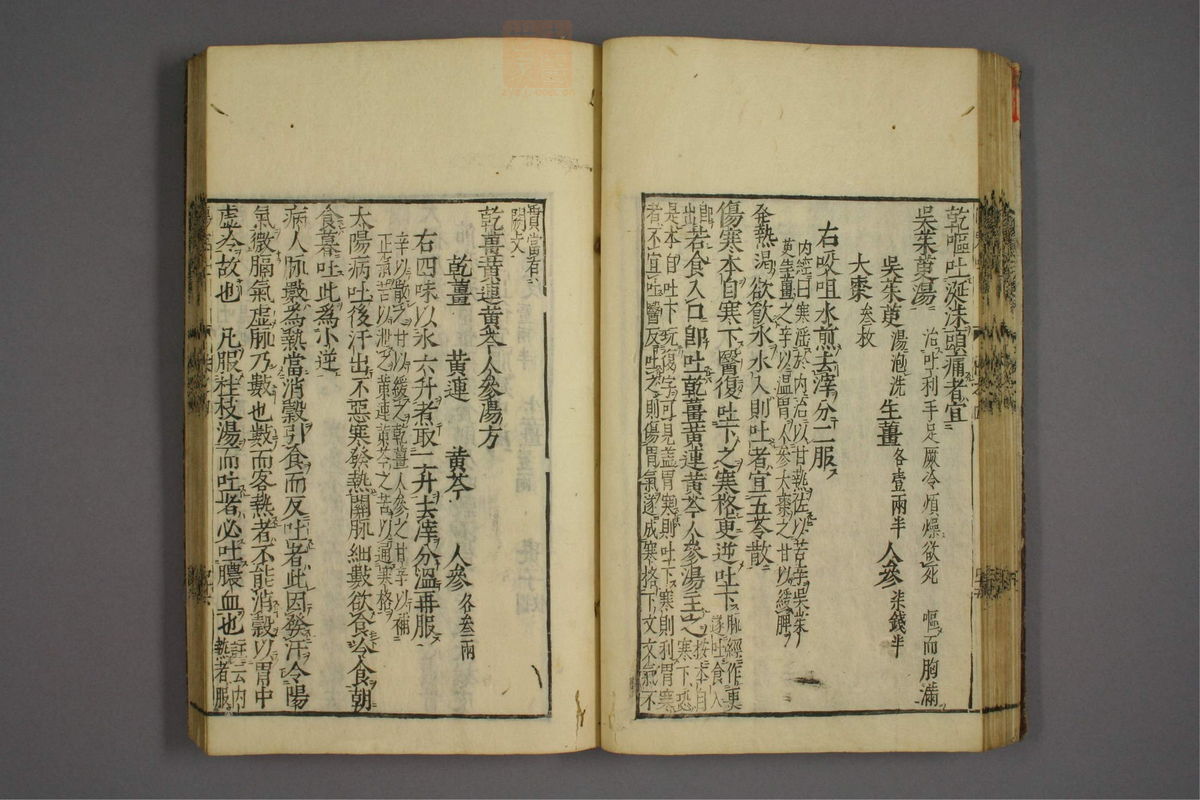 乾嘔吐涎沫頭痛者宜
吳茱萸湯 治吐利手足厥冷煩燥欲死 嘔而胸滿
吳茱萸 湯泡洗 生薑 各壹兩半 人參 柒錢半
大棗 叁枚
右㕮咀水煎去滓分二服
內經曰寒滛於內治以甘熱佐以苦辛吳茱
萸生薑之辛以温胃人參大棗之甘以緩脾
發熱渴欲飲水水入則吐者宜五苓散
傷寒本自寒下醫復吐下之寒格更逆吐下 脉經作更
遂吐食入
即出若食入口即吐乾薑黃連黃芩人參湯主之 按本自
寒下恐
是本自吐下玩復字可見盖胃寒則吐下寒則利胃寒
者不宜吐醫反吐之則傷胃氣遂成寒格下文文氣不
貫當有
闕文
乾薑黃連黃芩人參湯方
乾薑 黃連 黃芩 人參 各叁兩
右四味以水六升煮取二升去滓分溫再服
辛以散之甘以緩之乾薑人參之甘辛以補
正氣苦以泄之黃連黃芩之苦以通寒格
太陽病吐後汗出不惡寒發熱關脉細數欲食冷食朝
食暮吐此為小逆
病人脉數為熱當消穀引食而反吐者此因發汗令陽
氣微膈氣虛脉乃數也數而客熱者不能消穀以胃中
虛冷故也 凡服桂枝湯而吐者必吐膿血也 註云內
熱者服